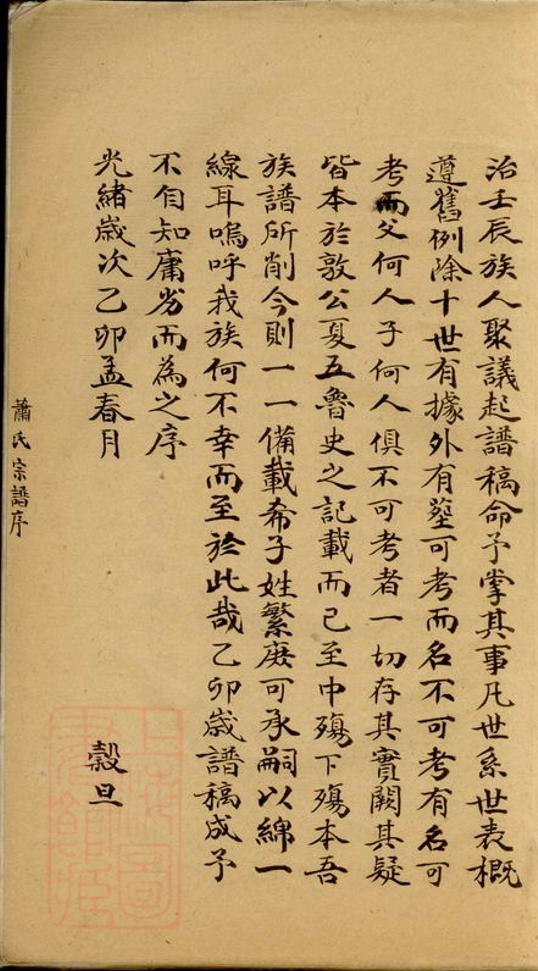 治壬辰族人聚議起譜稿命予掌其事凡世系世表概
遵舊例除十世有據外有塋可考而名不可考有名可
考而父何人子何人俱不可考者一切存其實闕其疑
皆本於敦公夏五魯史之記載而已至中殤下殤本吾
族譜所削今則一一備載希子姓繁庶可承嗣以綿一
線耳嗚呼我族何不幸而至於此哉乙卯歲譜稿成予
不自知庸劣而為之序
光緒歲次乙卯孟春月 穀旦
蕭氏宗譜序